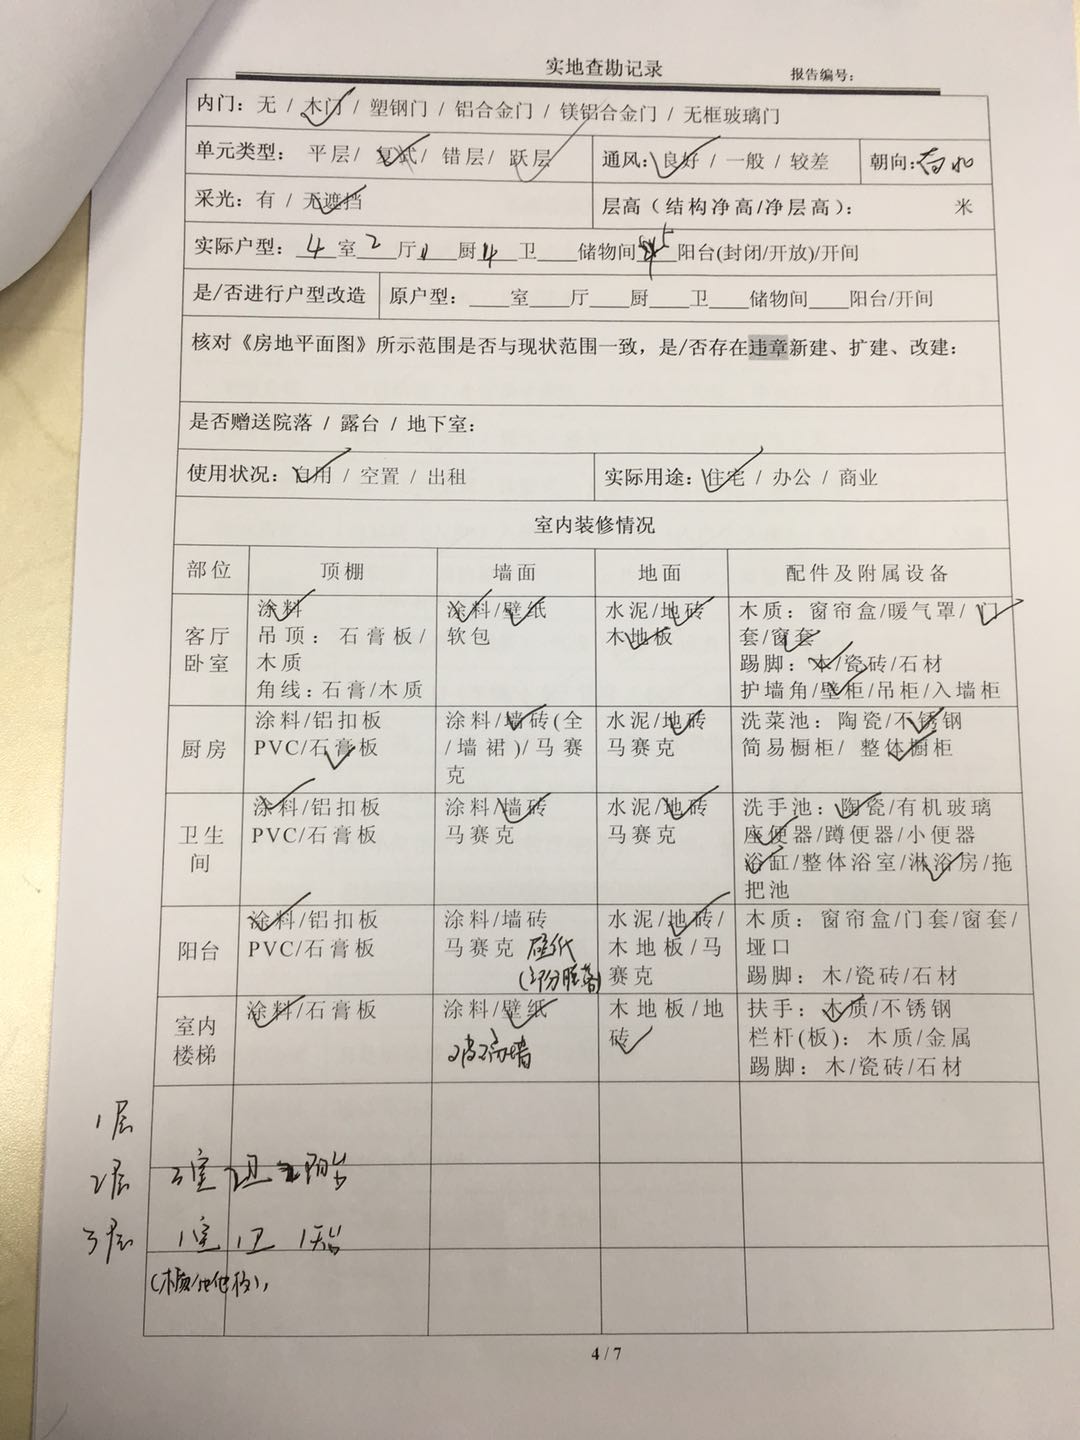 实地查勘记录
报告编号：
内门：无 / 木门 / 塑钢门 / 铝合金门 / 镁铝合金门 / 无框玻璃门
单元类型： 平层/ 复式/ 错层/ 跃层
通风：良好 / 一般 / 较差
朝向：南北
采光：有 / 无遮挡
层高（结构净高/净层高）： 米
实际户型：4室2厅1厨4卫____储物间5阳台(封闭/开放)/开间
是/否进行户型改造
原户型：____室____厅____厨____卫____储物间____阳台/开间
核对《房地平面图》所示范围是否与现状范围一致，是/否存在违章新建、扩建、改建：
是否赠送院落 / 露台 / 地下室：
使用状况：自用 / 空置 / 出租
实际用途：住宅 / 办公 / 商业
室内装修情况
部位 顶棚 墙面 地面 配件及附属设备
客厅
卧室
涂料
吊顶：石膏板/
木质
角线：石膏/木质
涂料/壁纸
软包
水泥/地砖
木地板
木质：窗帘盒/暖气罩/门
套/窗套
踢脚：木/瓷砖/石材
护墙角/壁柜/吊柜/入墙柜
厨房
涂料/铝扣板
PVC/石膏板
涂料/墙砖(全
/墙裙)/马赛
克
水泥/地砖
马赛克
洗菜池：陶瓷/不锈钢
简易橱柜/ 整体橱柜
卫生
间
涂料/铝扣板
PVC/石膏板
涂料/墙砖
马赛克
水泥/地砖
马赛克
洗手池：陶瓷/有机玻璃
座便器/蹲便器/小便器
浴缸/整体浴室/淋浴房/拖
把池
阳台
涂料/铝扣板
PVC/石膏板
涂料/墙砖
马赛克 壁纸
(部分脱落)
水泥/地砖/
木地板/马
赛克
木质：窗帘盒/门套/窗套/
垭口
踢脚：木/瓷砖/石材
室内
楼梯
涂料/石膏板
涂料/壁纸
木地板/地
砖
扶手：木质/不锈钢
栏杆(板)：木质/金属
踢脚：木/瓷砖/石材
1层
2层 3室 2卫 阳台
3层 1室 1卫
4 / 7